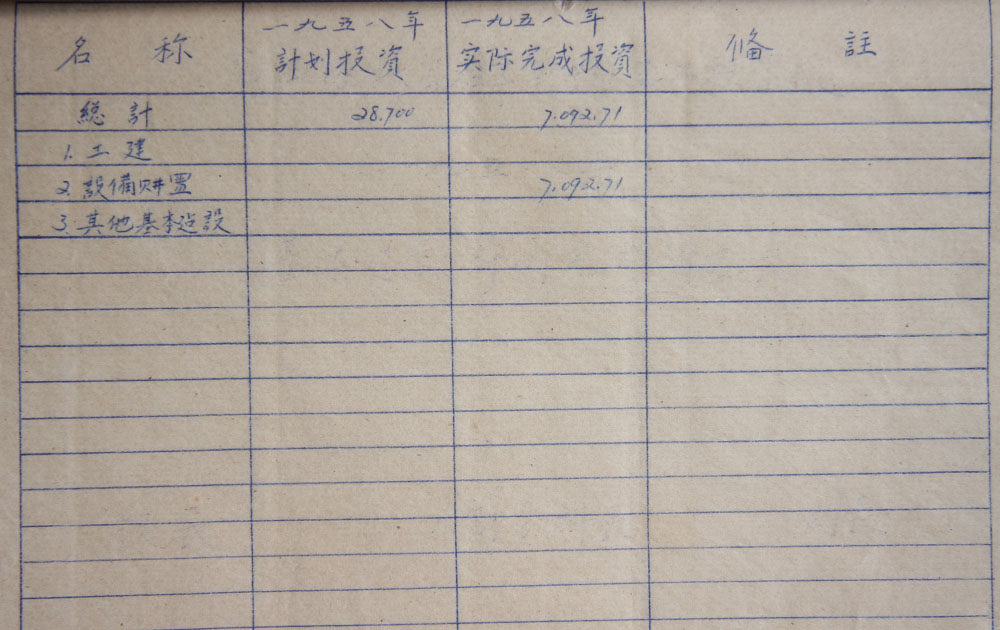 名 称 一九五八年 計划投資 一九五八年 实际完成投資 俻 註
総 計 28.700 7.092.71
1. 土 建
2. 設備购置 7.092.71
3. 其他基本边設